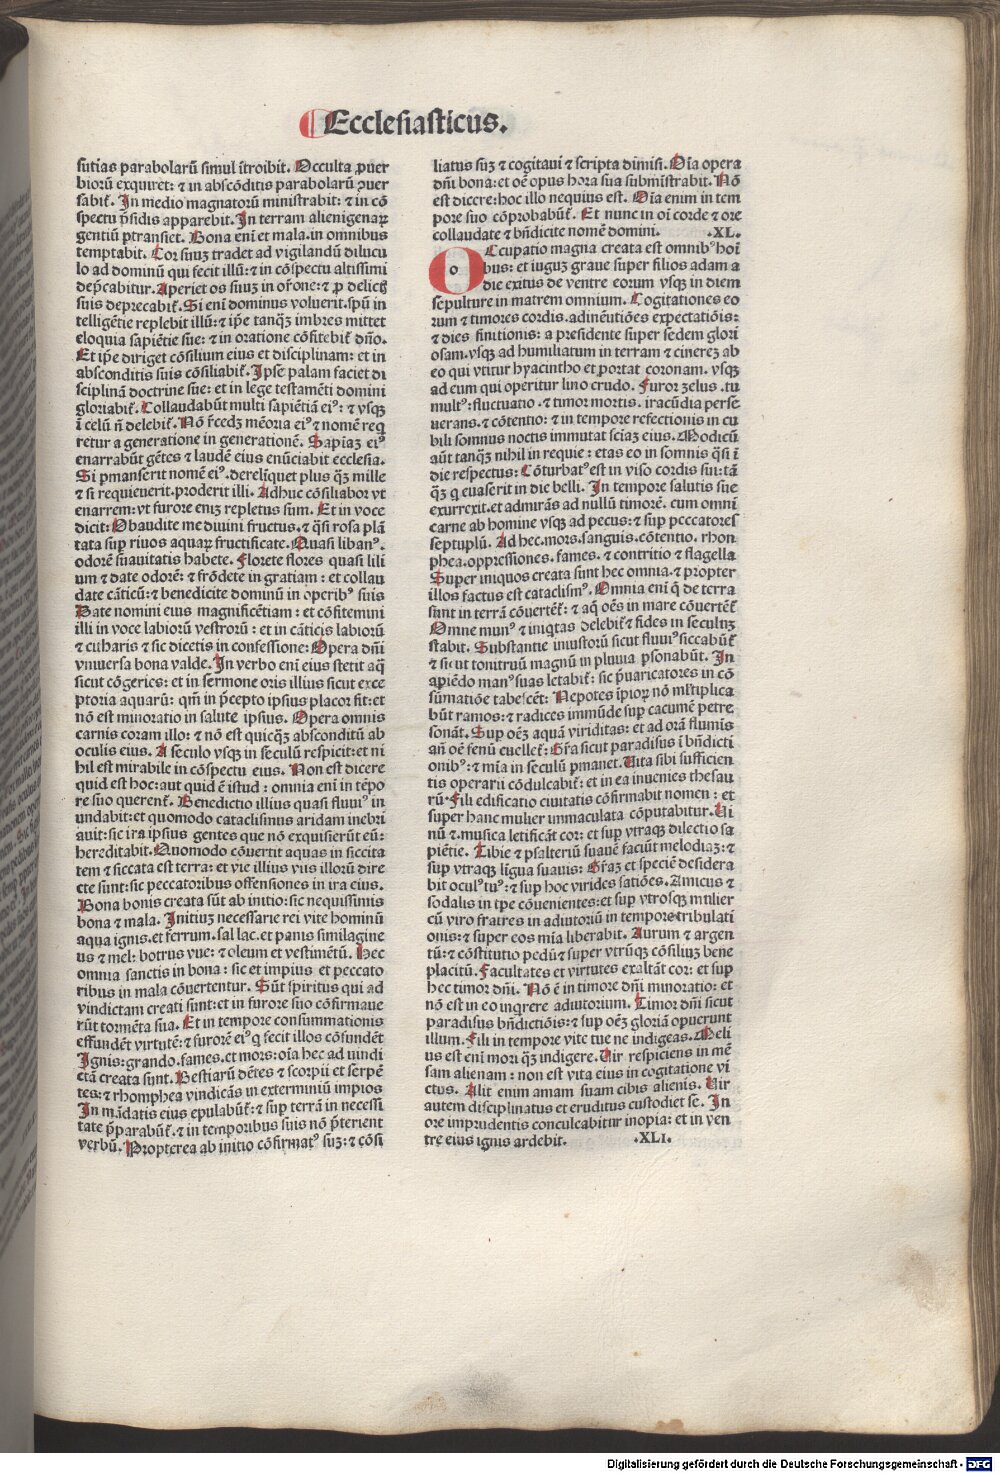 Ecclesiasticus.
sutias parabolarū simul ītroibit. Occulta ꝓuer
biorū exquiret: ⁊ in abscōditis parabolarū ꝯuer
sabiť. In medio magnatorū ministrabit: ⁊ in cō
spectu p̄sidis apparebit. In terram alienigenaꝝ
gentiū ptransiet. Bona enī et mala.in omnibus
temptabit. Cor suuꝫ tradet ad vigilandū dilucu
lo ad dominū qui fecit illū: ⁊ in cōspectu altissimi
dep̄cabitur. Aperiet os suuꝫ in or̄one: ⁊ ꝓ delictꝭ
suis deprecabiť. Si enī dominus voluerit.spū in
telligētie replebit illū: ⁊ ip̄e tanqꝫ imbres mittet
eloquia sapiētie sue: ⁊ in oratione cōfitebiť dn̄o.
Et ip̄e diriget cōsilium eius et disciplinam: et in
absconditis suis cōsiliabiť. Ipse palam faciet di
sciplinā doctrine sue: et in lege testamēti domini
gloriabiť. Collaudabūt multi sapiētiā eiꝰ: ⁊ vsqꝫ
ī celū n̄ delebiť. Nō r̄cedꝫ mēoria eiꝰ ⁊ nomē req
retur a generatione in generationē. Sapīaꝫ eiꝰ
enarrabūt gētes ⁊ laudē eius enūciabit ecclesia.
Si pmanserit nomē eiꝰ.derelīquet plus qꝫ mille
⁊ si requieuerit.proderit illi. Adhuc cōsiliabor vt
enarrem: vt furore eniꝫ repletus sum. Et in voce
dicit: Obaudite me diuini fructus.⁊ q̄si rosa plā
tata sup riuos aquaꝝ fructificate. Quasi libanꝰ.
odorē suauitatis habete. Florete flores quasi lili
um ⁊ date odorē: ⁊ frōdete in gratiam: et collau
date cāticū: ⁊ benedicite dominū in operibꝰ suis
Date nomini eius magnificētiam: et cōfitemini
illi in voce labiorū vestrorū: et in cāticis labiorū
⁊ citharis ⁊ sic dicetis in confessione: Opera dn̄i
vniuersa bona valde. In verbo enī eius stetit aq̄
sicut cōgeries: et in sermone oris illius sicut exce
ptoria aquarū: qm̄ in p̄cepto ipsius placor fit: et
nō est minoratio in salute ipsius. Opera omnis
carnis coram illo: ⁊ nō est quicqꝫ absconditū ab
oculis eius. A seculo vsqꝫ in seculū respicit: et ni
hil est mirabile in cōspectu eius. Non est dicere
quid est hoc: aut quid ē istud: omnia enī in tēpo
re suo querenť. Benedictio illius quasi fluuiꝰ in
undabit: et quomodo cataclismus aridam inebri
auit: sic ira ipsius gentes que nō exquisierūt eū:
hereditabit. Quomodo cōuertit aquas in siccita
tem ⁊ siccata est terra: et vie illius viis illorū dire
cte sunt: sic peccatoribus offensiones in ira eius.
Bona bonis creata sūt ab initio: sic nequissimis
bona ⁊ mala. Initiuꝫ necessarie rei vite hominū
aqua ignis.et ferrum.sal lac.et panis similagine
us ⁊ mel: botrus vue: ⁊ oleum et vestimētū. Hec
omnia sanctis in bona: sic et impius et peccato
ribus in mala cōuertentur. Sūt spiritus qui ad
vindictam creati sunt: et in furore suo cōfirmaue
rūt tormēta sua. Et in tempore consummationis
effundēt virtutē: ⁊ furorē eiꝰ q̨ fecit illos cōfundēt
Ignis: grando.fames.et mors: oīa hec ad uindi
ctā creata sunt. Bestiarū dētes ⁊ scorpii et serpē
tes: ⁊ rhomphea vindicās in exterminiū impios
In mādatis eius epulabūť: ⁊ sup terrā in necessi
tate p̄parabūť.⁊ in temporibus suis nō p̄terient
verbū. Propterea ab initio cōfirmatꝰ suꝫ: ⁊ cōsi
liatus suꝫ ⁊ cogitaui ⁊ scripta dimisi. Oīa opera
dn̄i bona: et oē opus hora sua submīstrabit. Nō
est dicere: hoc illo nequius est. Oīa enim in tem
pore suo cōprobabūť. Et nunc in oī corde ⁊ ore
collaudate ⁊ bn̄dicite nomē domini. .XL.
OCcupatio magna creata est omnibꝰ hoī
bus: et iuguꝫ graue super filios adam a
die exitus de ventre eorum vsqꝫ in diem
sepulture in matrem omnium. Cogitationes eo
rum ⁊ timores cordis.adinētiōes expectatiōis:
⁊ dies finitionis: a presidente super sedem glori
osam.vsqꝫ ad humiliatum in terram ⁊ cinereꝫ ab
eo qui vtitur hyacintho et portat coronam.vsqꝫ
ad eum qui operitur lino crudo. Furor zelus.tu
multꝰ: fluctuatio.⁊ timor mortis.iracūdia perse
uerans.⁊ cōtentio: ⁊ in tempore refectionis in cu
bili somnus noctis immutat sciaꝫ eius. Modicū
aūt tanqꝫ nihil in requie: et as eo in somnis q̄si ī
die respectus: Cōturbatꝰ est in viso cordis sui: tā
qꝫ q euaserit in die belli. In tempore salutis sue
exurrexit.et admirās ad nullū timorē. cum omni
carne ab homine vsqꝫ ad pecus: ⁊ sup peccatores
septuplū. Ad hec.mors.sanguis.cōtentio.rhon
phea.oppressiones.fames.⁊ contritio ⁊ flagella
Super iniquos creata sunt hec omnia.⁊ propter
illos factus est cataclismꝰ. Omnia enī q̄ de terra
sunt in terrā cōuertēť: ⁊ aq̄ oēs in mare cōuertēť
Omne munꝰ ⁊ iniq̄tas delebiť ⁊ fides in seculuꝫ
stabit. Substantie iniustorū sicut fluuiꝰ siccabūť
⁊ sicut tonitruū magnū in pluuia psonabūt. In
apiēdo manꝰ suas letabiť: sic p̄uaricatores in cō
sūmatiōe tabescēt: Nepotes īpioꝝ nō ml̄tiplica
būt ramos: ⁊ radices immūde sup cacumē petre
sonāt. Sup oēꝫ aquā viriditas: et ad orā flumīs
an̄ oē fenū euelleť: Gr̄a sicut paradisus ī bn̄dicti
onibꝰ: ⁊ mīa in seculū pmanet. Uita sibi sufficien
tis operarii cōdulcabiť: et in ea inuenies thesau
rū. Filii edificatio ciuitatis cōfirmabit nomen: et
super hanc mulier immaculata cōputabitur. Ui
nū ⁊ musica letificāt cor: et sup vtraqꝫ dilectio sa
piētie. Tibie ⁊ psalteriū suauē faciūt melodiaꝫ: ⁊
sup vtraqꝫ līgua suauis: Gr̄aꝫ et speciē desidera
bit oculꝰ tuꝰ: ⁊ sup hoc virides satiōes. Amicus ⁊
sodalis in tp̄e cōuenientes: et sup vtrosqꝫ mulier
cū viro fratres in adiutoriū in tempore tribulati
onis: ⁊ super eos mīa liberabit. Aurum ⁊ argen
tū: ⁊ cōstitutio pedū ⁊ super vtrūqꝫ cōsiliuꝫ bene
placitū. Facultates et virtutes exaltāt cor: et sup
hec timor dn̄i. Nō ē in timore dn̄i minoratio: et
nō est in eo inqrere adiutorium. Timor dn̄i sicut
paradisus bn̄dictiōis: ⁊ sup oēꝫ gloriā opuerunt
illum. Fili in tempore vite tue ne indigeas. Meli
us est enī mori qꝫ indigere. Uir respiciens in mē
sam alienam: non est vita eius in cogitatione vi
ctus. Alit enim amam suam cibis alienis. Uir
autem disciplinatus et eruditus custodiet se. In
ore imprudentis conculcabitur inopia: et in ven
tre eius ignis ardebit. .XLI.
Digitalisierung gefördert durch die Deutsche Forschungsgemeinschaft - DFG